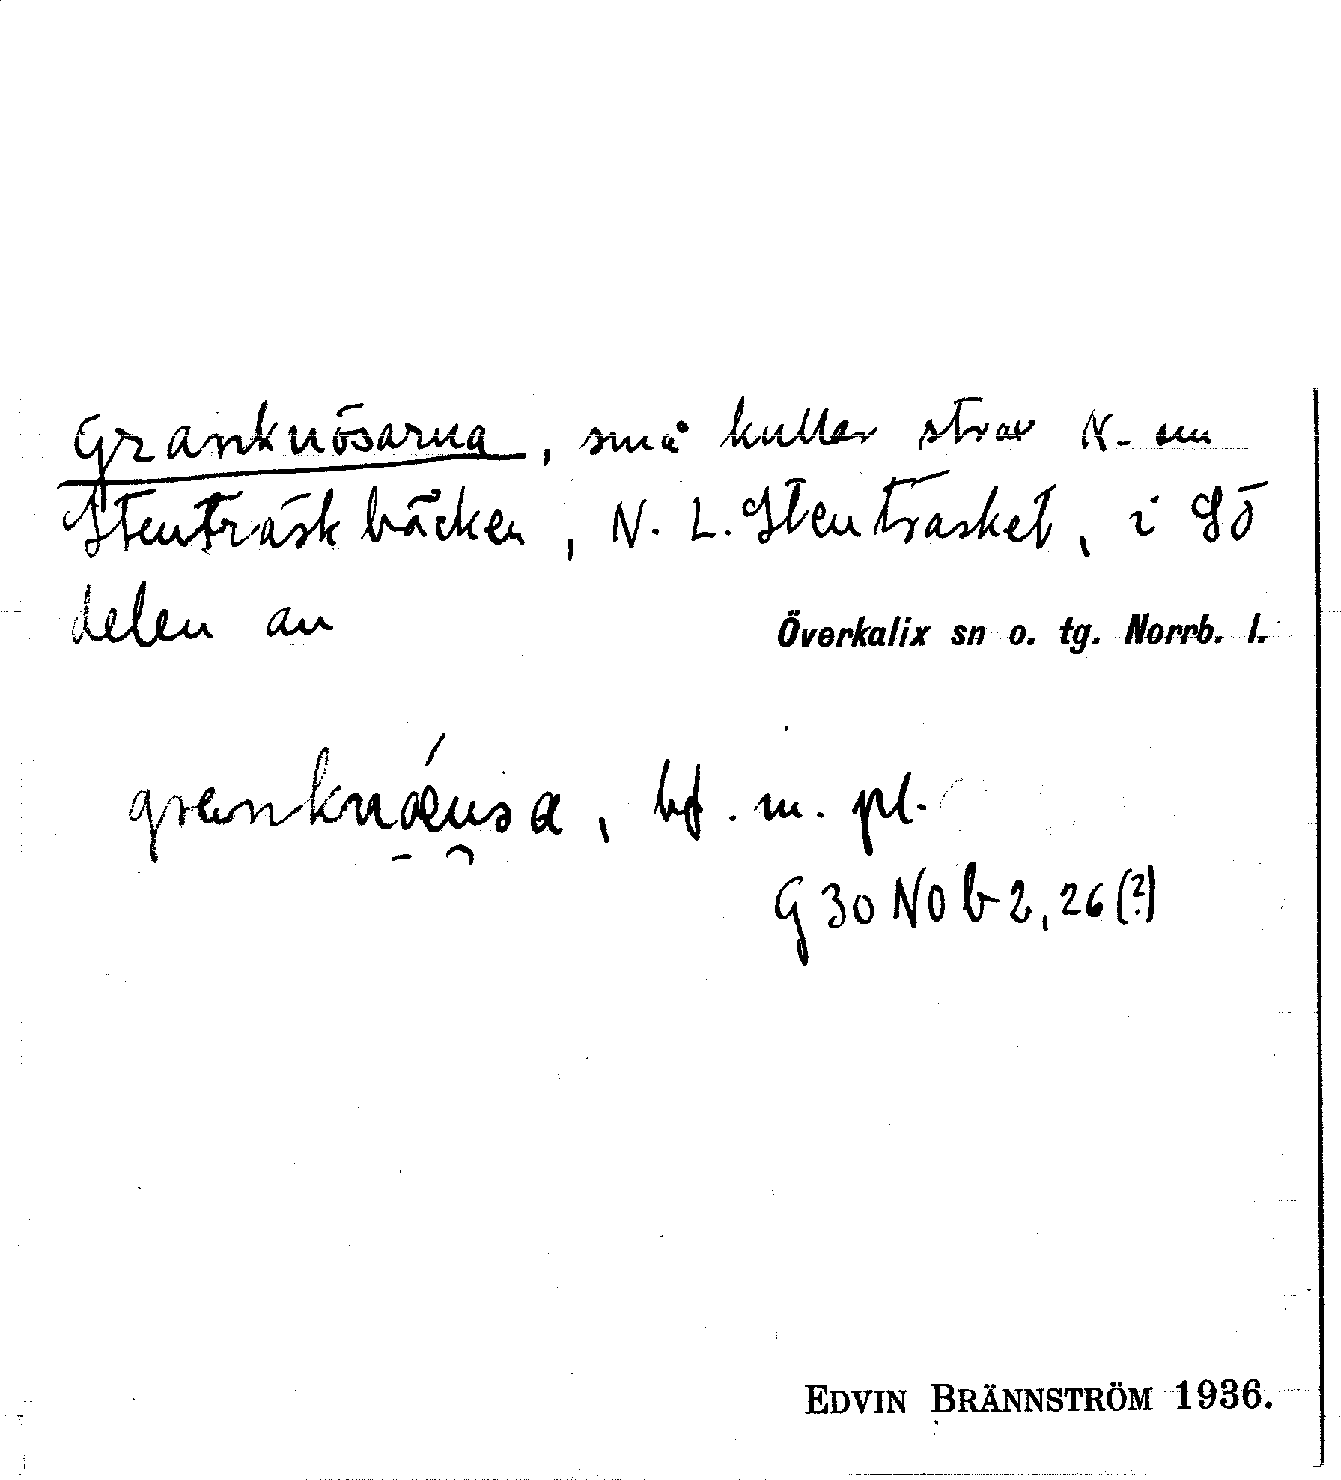 Granknösarna, små kullar strax N. om
Stenträskbäcken, N. L. Stenträsket, i SÖ
delen av Överkalix sn o. tg. Norrb. l.
granknáusa, bf. m. pl.
G 30 NO b 2, 26 (?)
EDVIN BRÄNNSTRÖM 1936.